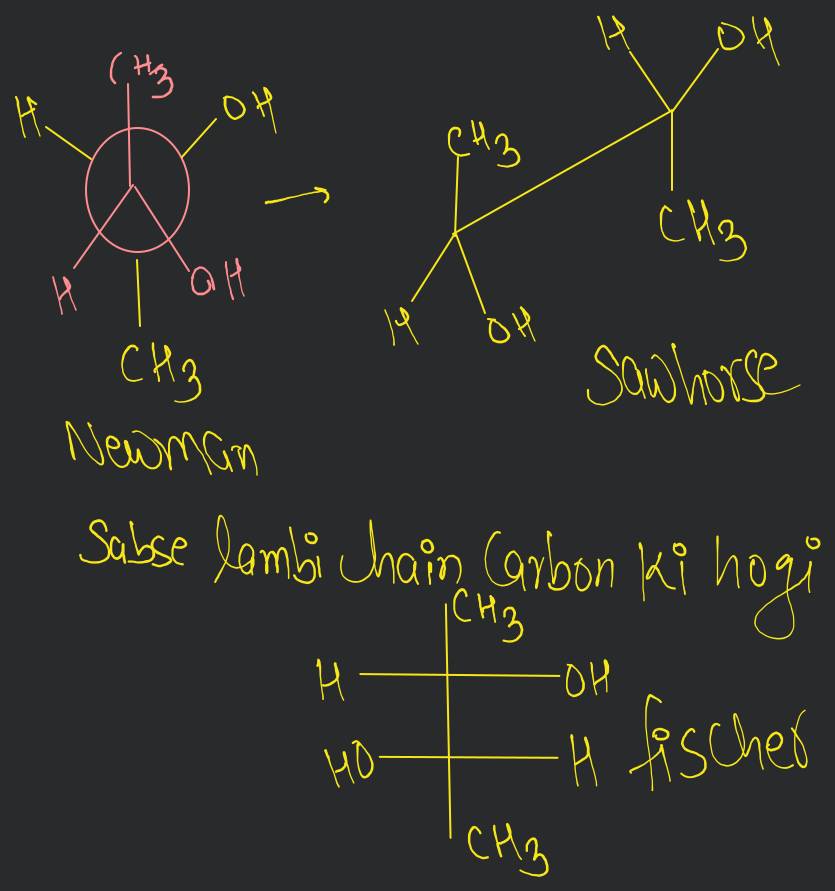 CH3
H
OH
H
OH
CH3
Newman
H
OH
CH3
CH3
H
OH
Sawhorse
Sabse lambi chain Carbon ki hogi
CH3
H
OH
HO
H
fischer
CH3